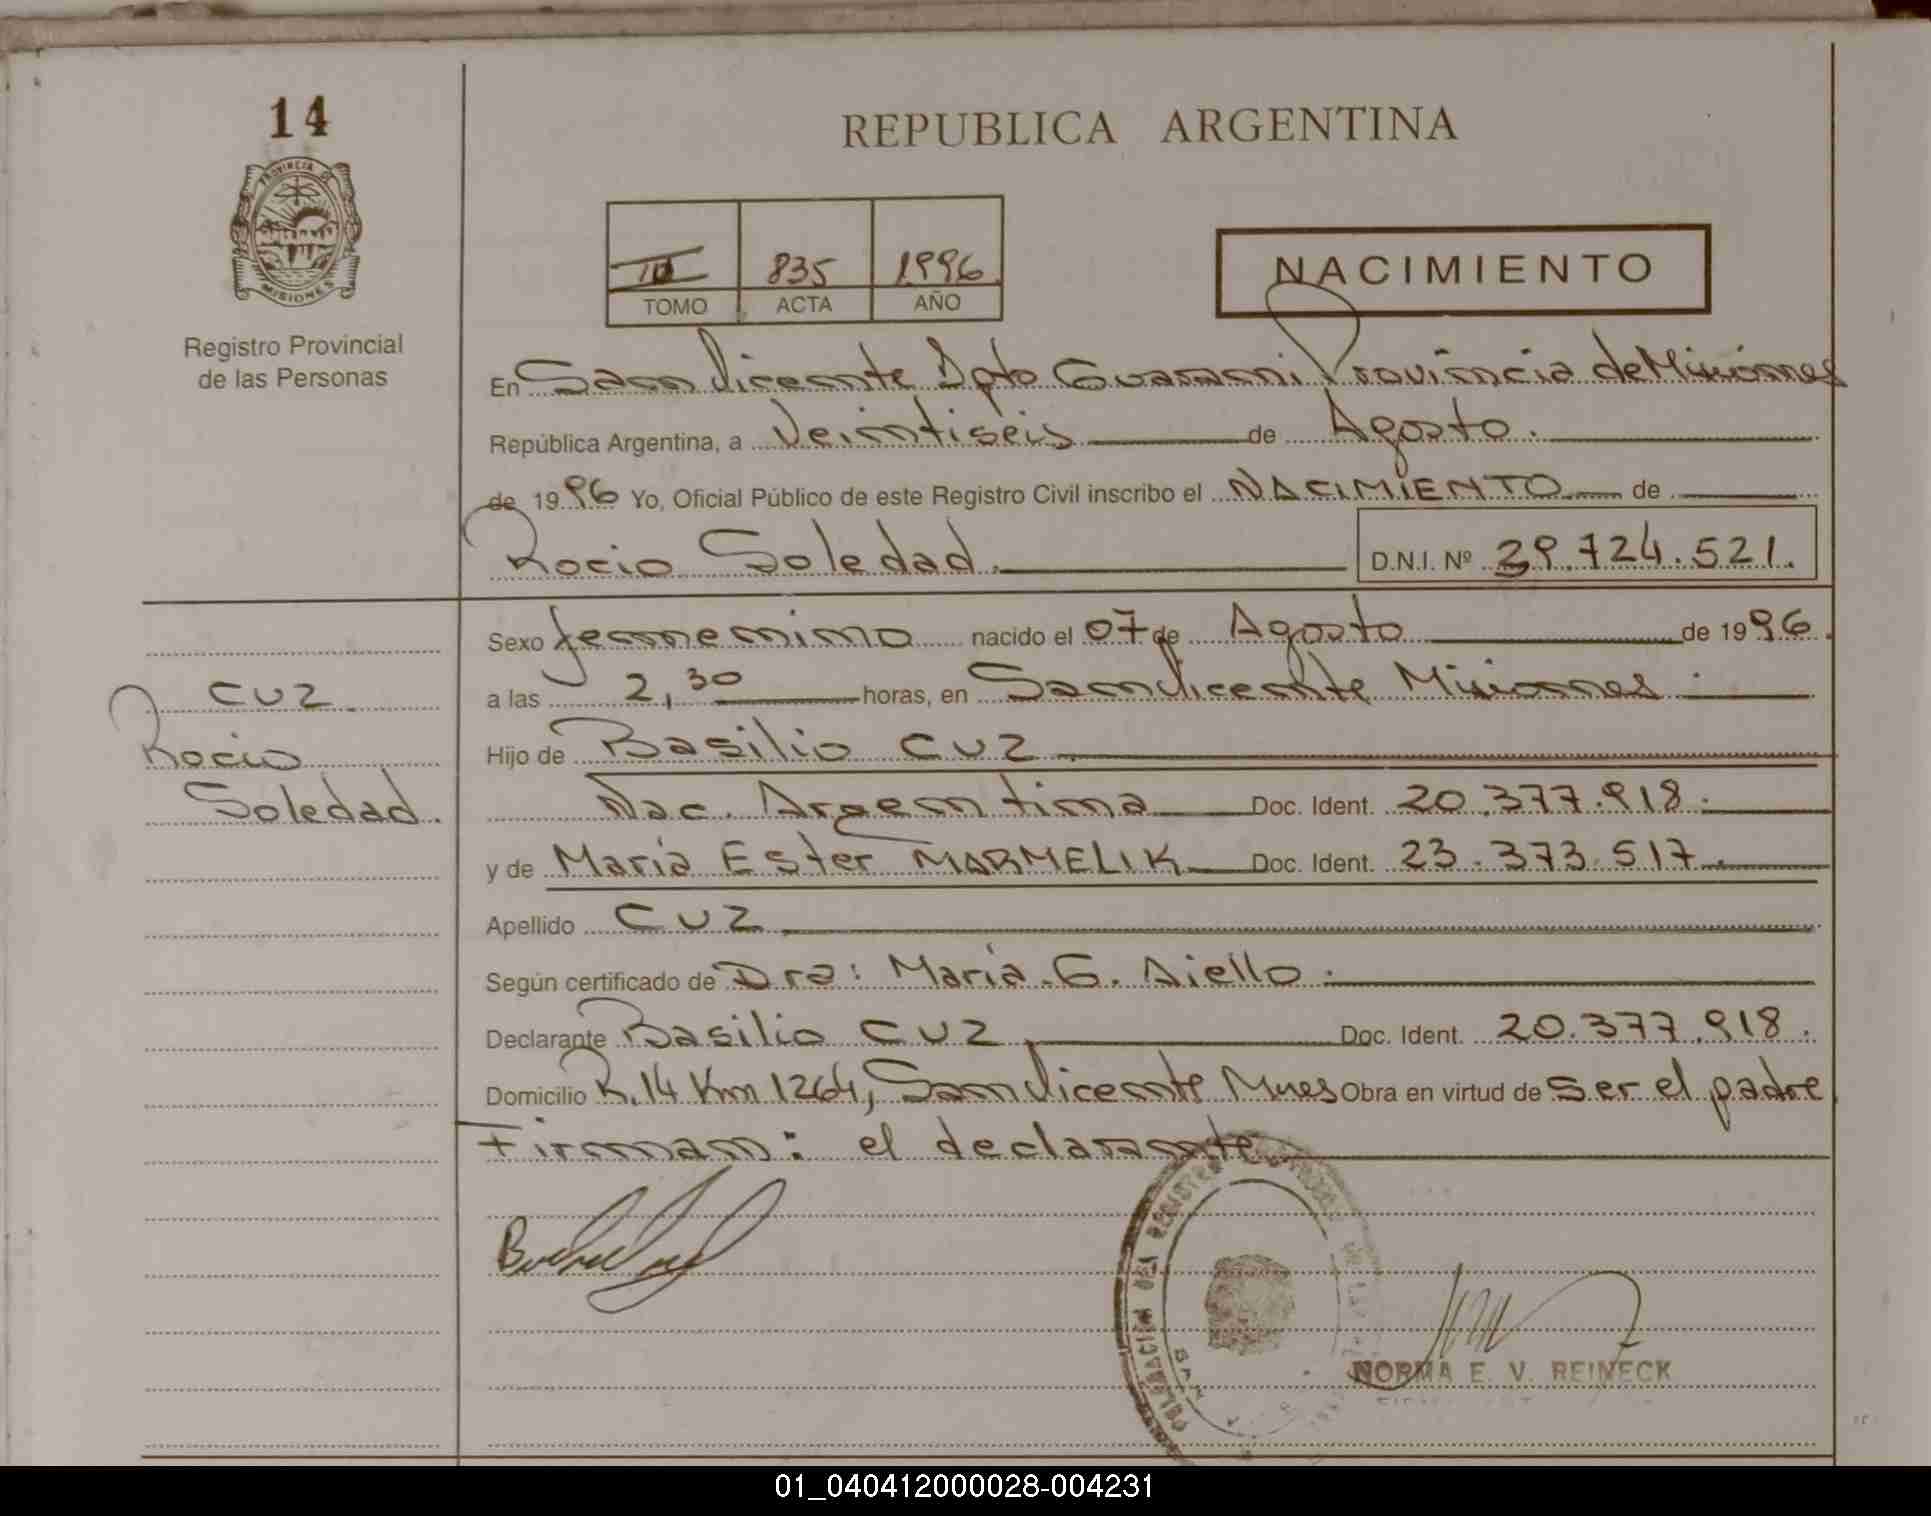 14
PROVINCIA DE
MISIONES
Registro Provincial
de las Personas
REPUBLICA ARGENTINA
III 835 1996
TOMO ACTA AÑO
NACIMIENTO
En San Vicente Dpto Guarani Provincia de Misiones
República Argentina, a Veintiseis de Agosto.
de 1996 Yo, Oficial Público de este Registro Civil inscribo el NACIMIENTO de
Rocio Soledad. D.N.I. Nº 39.724.521.
Sexo femenino nacido el 07 de Agosto de 1996.
a las 2,30 horas, en San Vicente Misiones.
Hijo de Basilio CUZ
Nac. Argentina Doc. Ident. 20.377.918.
y de Maria Ester MARMELIK Doc. Ident. 23.373.517.
Apellido CUZ
Según certificado de Dra: Maria G. Aiello.
Declarante Basilio CUZ Doc. Ident. 20.377.918.
Domicilio R.14 Km 1264, San Vicente Mnes Obra en virtud de ser el padre
Firman: el declarante
CUZ.
Rocio
Soledad.
NORMA E. V. REINECK
01_040412000028-004231